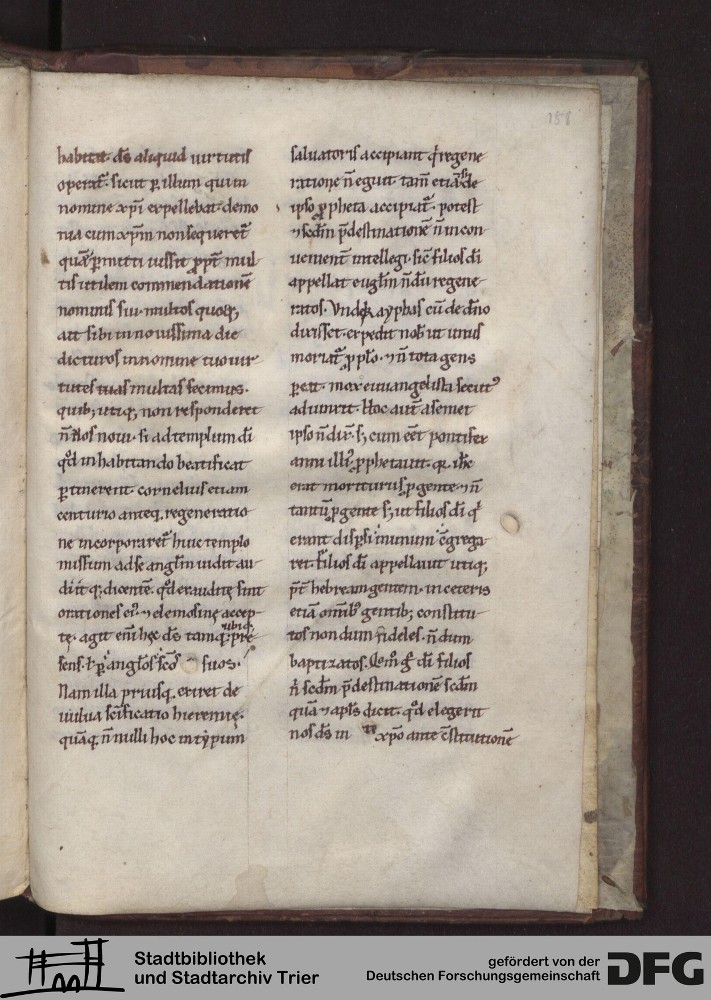 158
habitat. ds aliquid uirtutis
operat̄. sicut p illum qui in
nomine xp̄i expellebat demo
nia cum xp̄m non sequeret̄
quā pmitti iussit ꝓpt̄ mul
tis utilem commendationē
nominis sui. multos quoq;
ait sibi in nouissima die
dicturos in nomine tuo uir
tutes tuas multas fecimus.
quib; utiq; non responderet
n̄ uos noui. si ad templum dī
qd̄ inhabitando beatificat
ptinerent. cornelius etiam
centurio anteq. regeneratio
ne incorporaret̄ huic templo
missum ad se angl̄m uidit au
diit q; dicentē. qd̄ exauditę sint
orationes ei᾽ ⁊ elemosinę accep
tę. agit eni hęc ds tamq. ubiq; pre
sens. ł p anglos scōs suos.
Nam illa priusq. exiret de
uulua scīficatio hieremię.
quāq. n̄ nulli hoc in typum
saluatoris accipiant q regene
ratione n̄ eguit. tam̄ etiā si de
ipso ꝓpheta accipiat̄. potest
⁊ scdm p̄destinationē n̄ incon
uenient intellegi. sic filios dī
appellat eugl̄m n̄dū regene
ratos. Vnde cayphas cū de dn̄o
dixisset. expedit nob ut unus
moriat̄ ꝓ ppl̄o. ⁊ n̄ tota gens
peat. mox euuangelista secut᾽
adiunxit. Hoc aut̄ a semet
ipso n̄ dix̄. s; cum eēt pontifex
anni illi᾽ ꝓphetauit. q ih̄c
erat moriturus ꝓ gente. ⁊ n̄
tantū ꝓ gente s; ut filios dī q
erant dispsi in unum ōgrega
ret. filios dī appellauit utiq;
p̄t hebream gentem. in ceteris
etiā omib᾽ gentib; constitu
tos nondum fideles. n̄dum
baptizatos. Quom̄ g dī filios
n̄ scdm p̄destinationē scdm
quā ⁊ apl̄s dicit. qd̄ elegerit
nos ds in xp̄o ante ōstitutionē
Stadtbibliothek
und Stadtarchiv Trier
gefördert von der
Deutschen Forschungsgemeinschaft
DFG